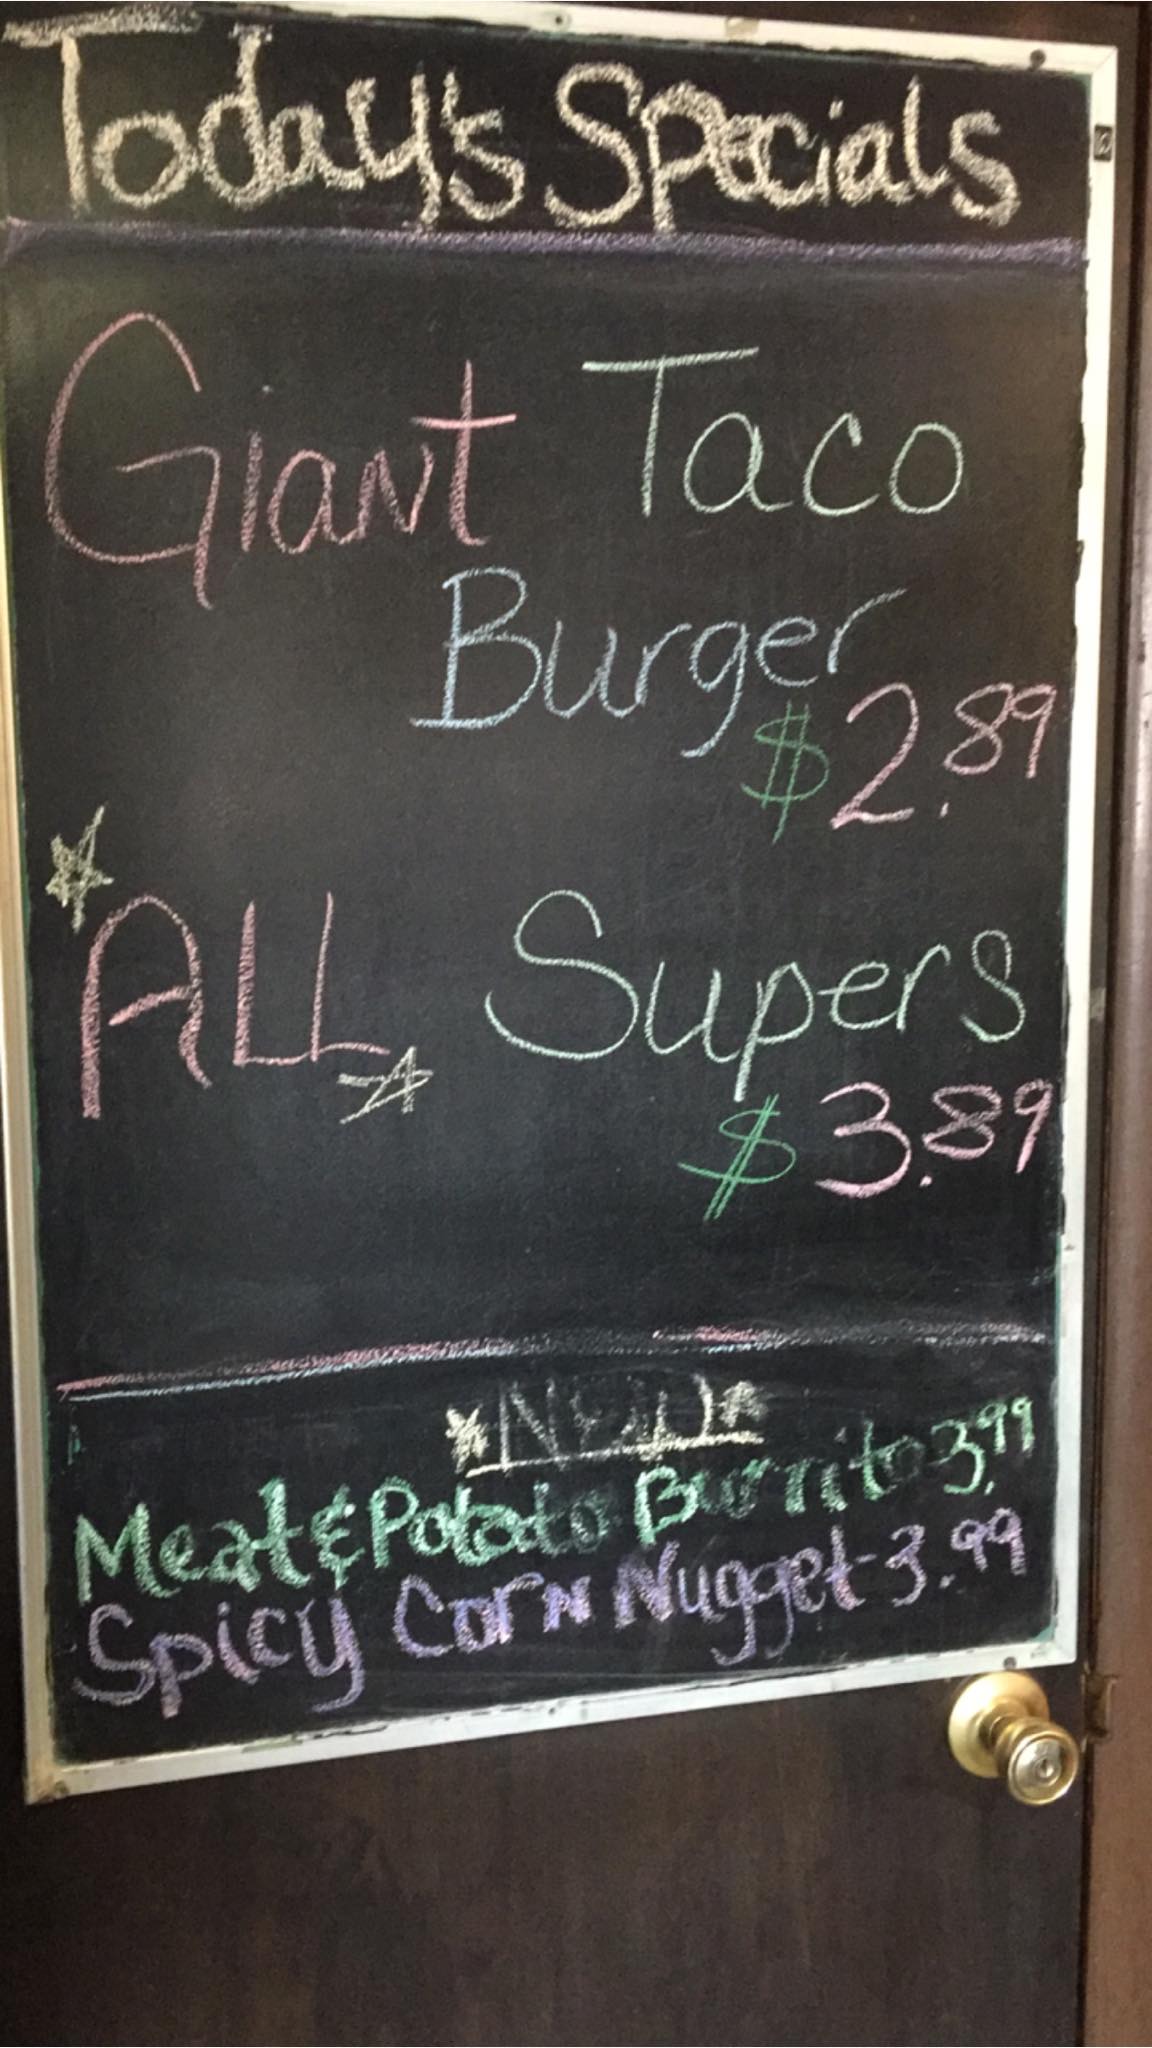 Today's Specials
Giant Taco
Burger
$2.89
ALL Supers
$3.89
*NEW*
Meat & Potato Burrito 3.99
Spicy Corn Nugget-3.99